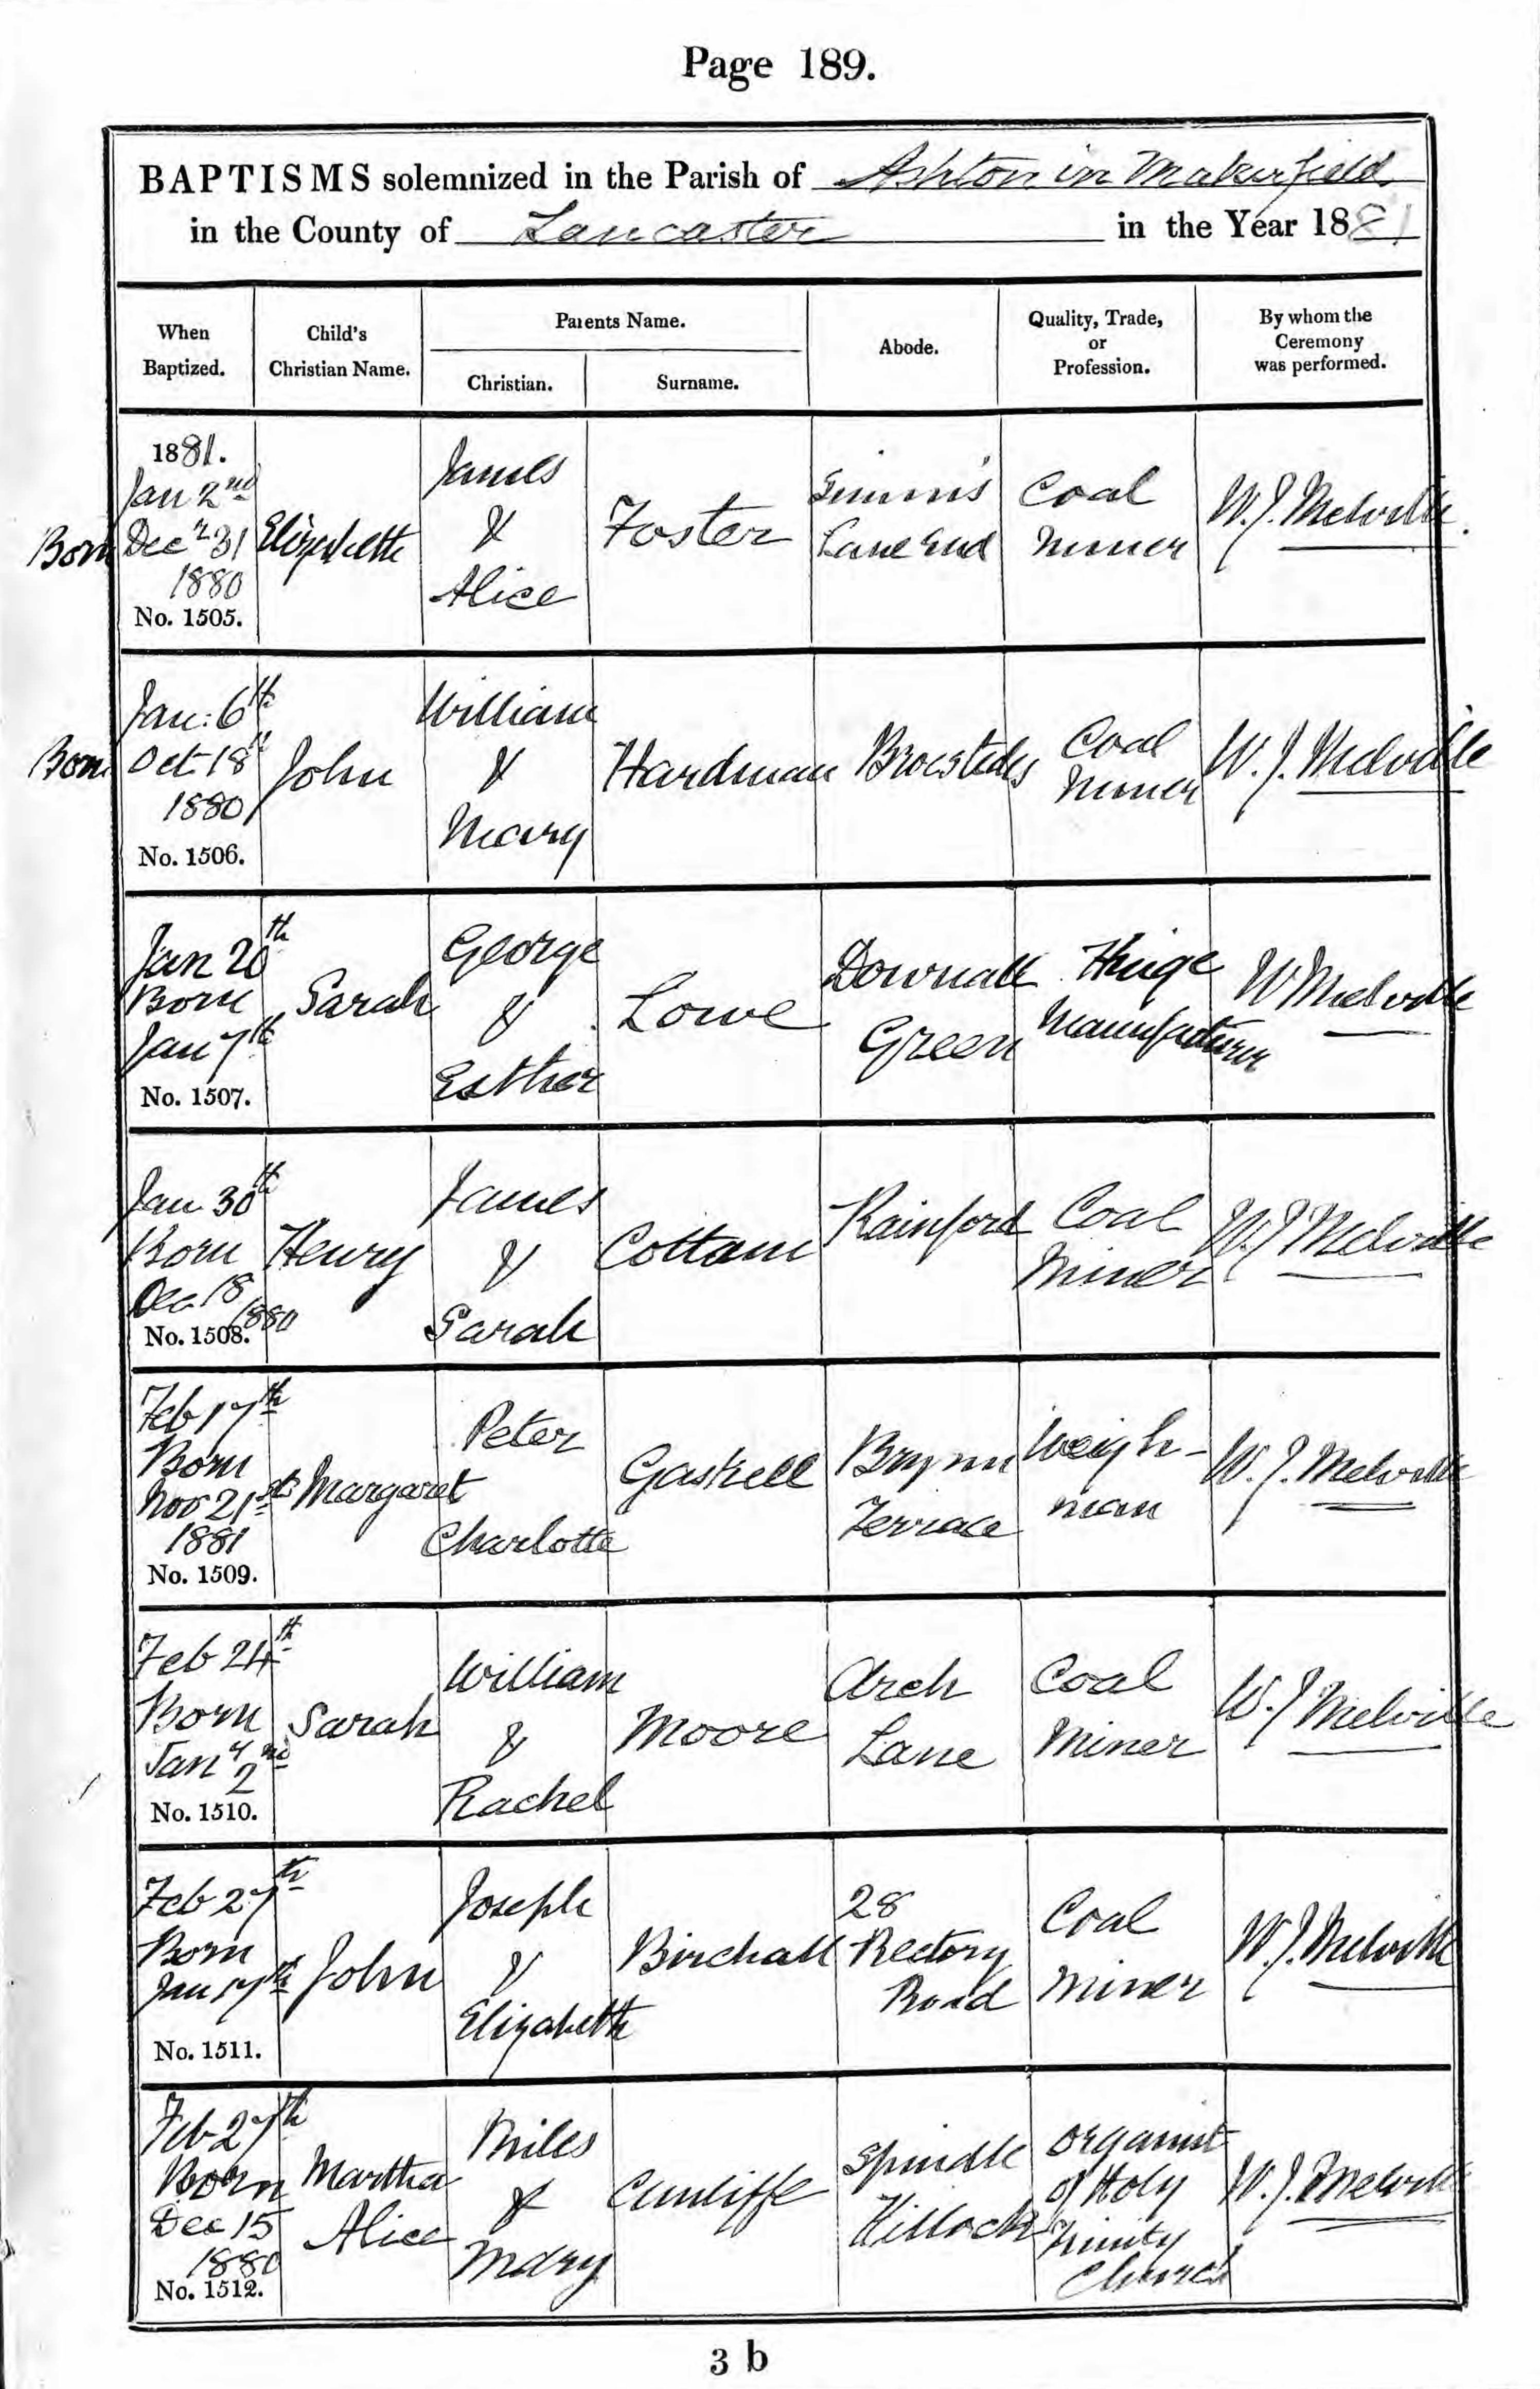 Page 189.
BAPTISMS solemnized in the Parish of Ashton in Makerfield
in the County of Lancaster in the Year 1881
When Baptized.
Child's Christian Name.
Parents Name.
Christian.
Surname.
Abode.
Quality, Trade, or Profession.
By whom the Ceremony was performed.
1881.
Jan 2nd
Born Decr 31
1880
No. 1505.
Elizabeth
James
&
Alice
Foster
Simm's
Lane End
Coal
Miner
W. J. Melville.
Jan: 6th
Born Oct 18th
1880
No. 1506.
John
William
&
Mary
Hardman
Coal
Miner
W. J. Melville
Jan 20th
Born
Jan 7th
No. 1507.
Sarah
George
&
Esther
Lowe
Downall
Green
Hinge
Manufacturer
W Melville
Jan 30th
Born
Dec 18
1880
No. 1508.
Henry
James
&
Sarah
Cottam
Rainford
Coal
Miner
W. J Melville
Feb 17th
Born
Nov 21st
1881
No. 1509.
Margaret
Peter
Charlotte
Gaskell
Brynn
Terrace
Weigh-
man
W. J. Melville
Feb 24th
Born
Jany 2nd
No. 1510.
Sarah
William
&
Rachel
Moore
Arch
Lane
Coal
Miner
W. J Melville
Feb 27th
Born
Jan 17th
No. 1511.
John
Joseph
&
Elizabeth
Birchall
28
Rectory
Road
Coal
Miner
W. J. Melville
Feb 27th
Born
Dec 15
1880
No. 1512.
Martha
Alice
Miles
&
Mary
Cunliffe
Spindle
Hillock
Organist
of Holy
Trinity
Church
W. J. Melville
3 b